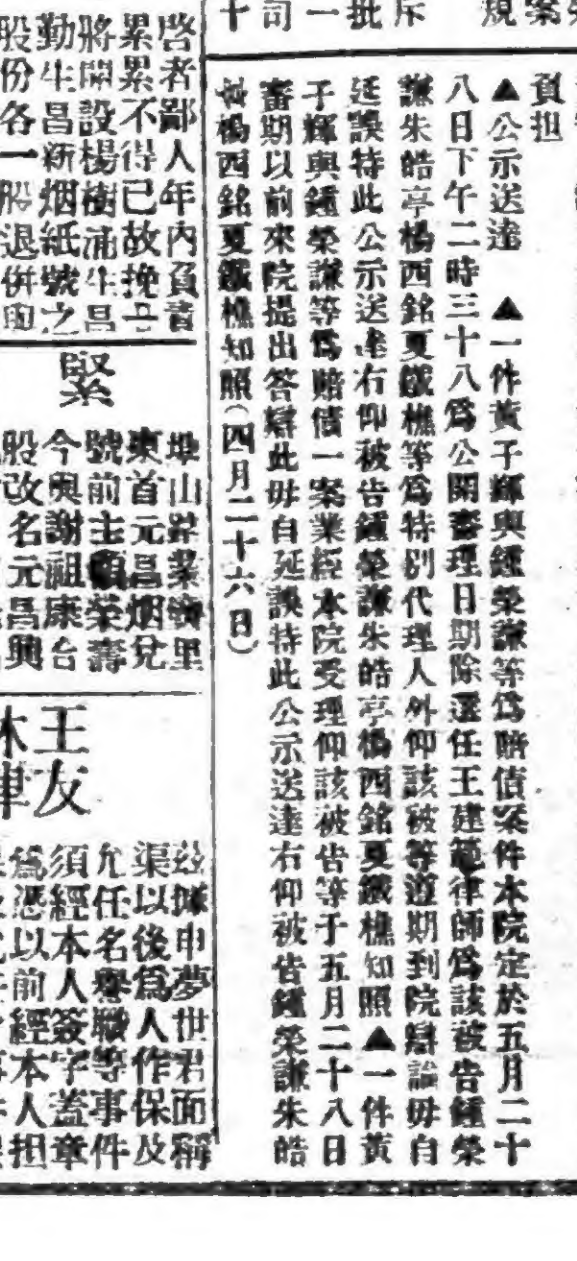 負担
▲公示送達　▲一件黃子輝與鍾榮謙等為賠償案件本院定於五月二十
八日下午二時三十八為公開審理日期除選任王建範律師為該被告鍾榮
謙朱皓亭楊西銘夏鐵樵等為特別代理人外仰該被等遵期到院辯論毋自
延誤特此公示送達右仰被告鍾榮謙朱皓亭楊西銘夏鐵樵知照▲一件黃
子輝與鍾榮謙等為賠償一案業經本院受理仰該被告等于五月二十八日
審期以前來院提出答辯此毋自延誤特此公示送達右仰被告鍾榮謙朱皓
楊西銘夏鐵樵知照（四月二十六日）
啓者鄙人年內負
累累不得已故挽
將開設楊樹浦生昌
勤生昌新烟紙號之
股份各一股退併
緊
東首元昌烟兌
號前主顧榮壽
今與謝祖康台
股改名元昌興
王友
茲據申夢世君面稱
渠以後為人作保及
允任名譽職等事件
須經本人簽字蓋章
為憑以前經本人担